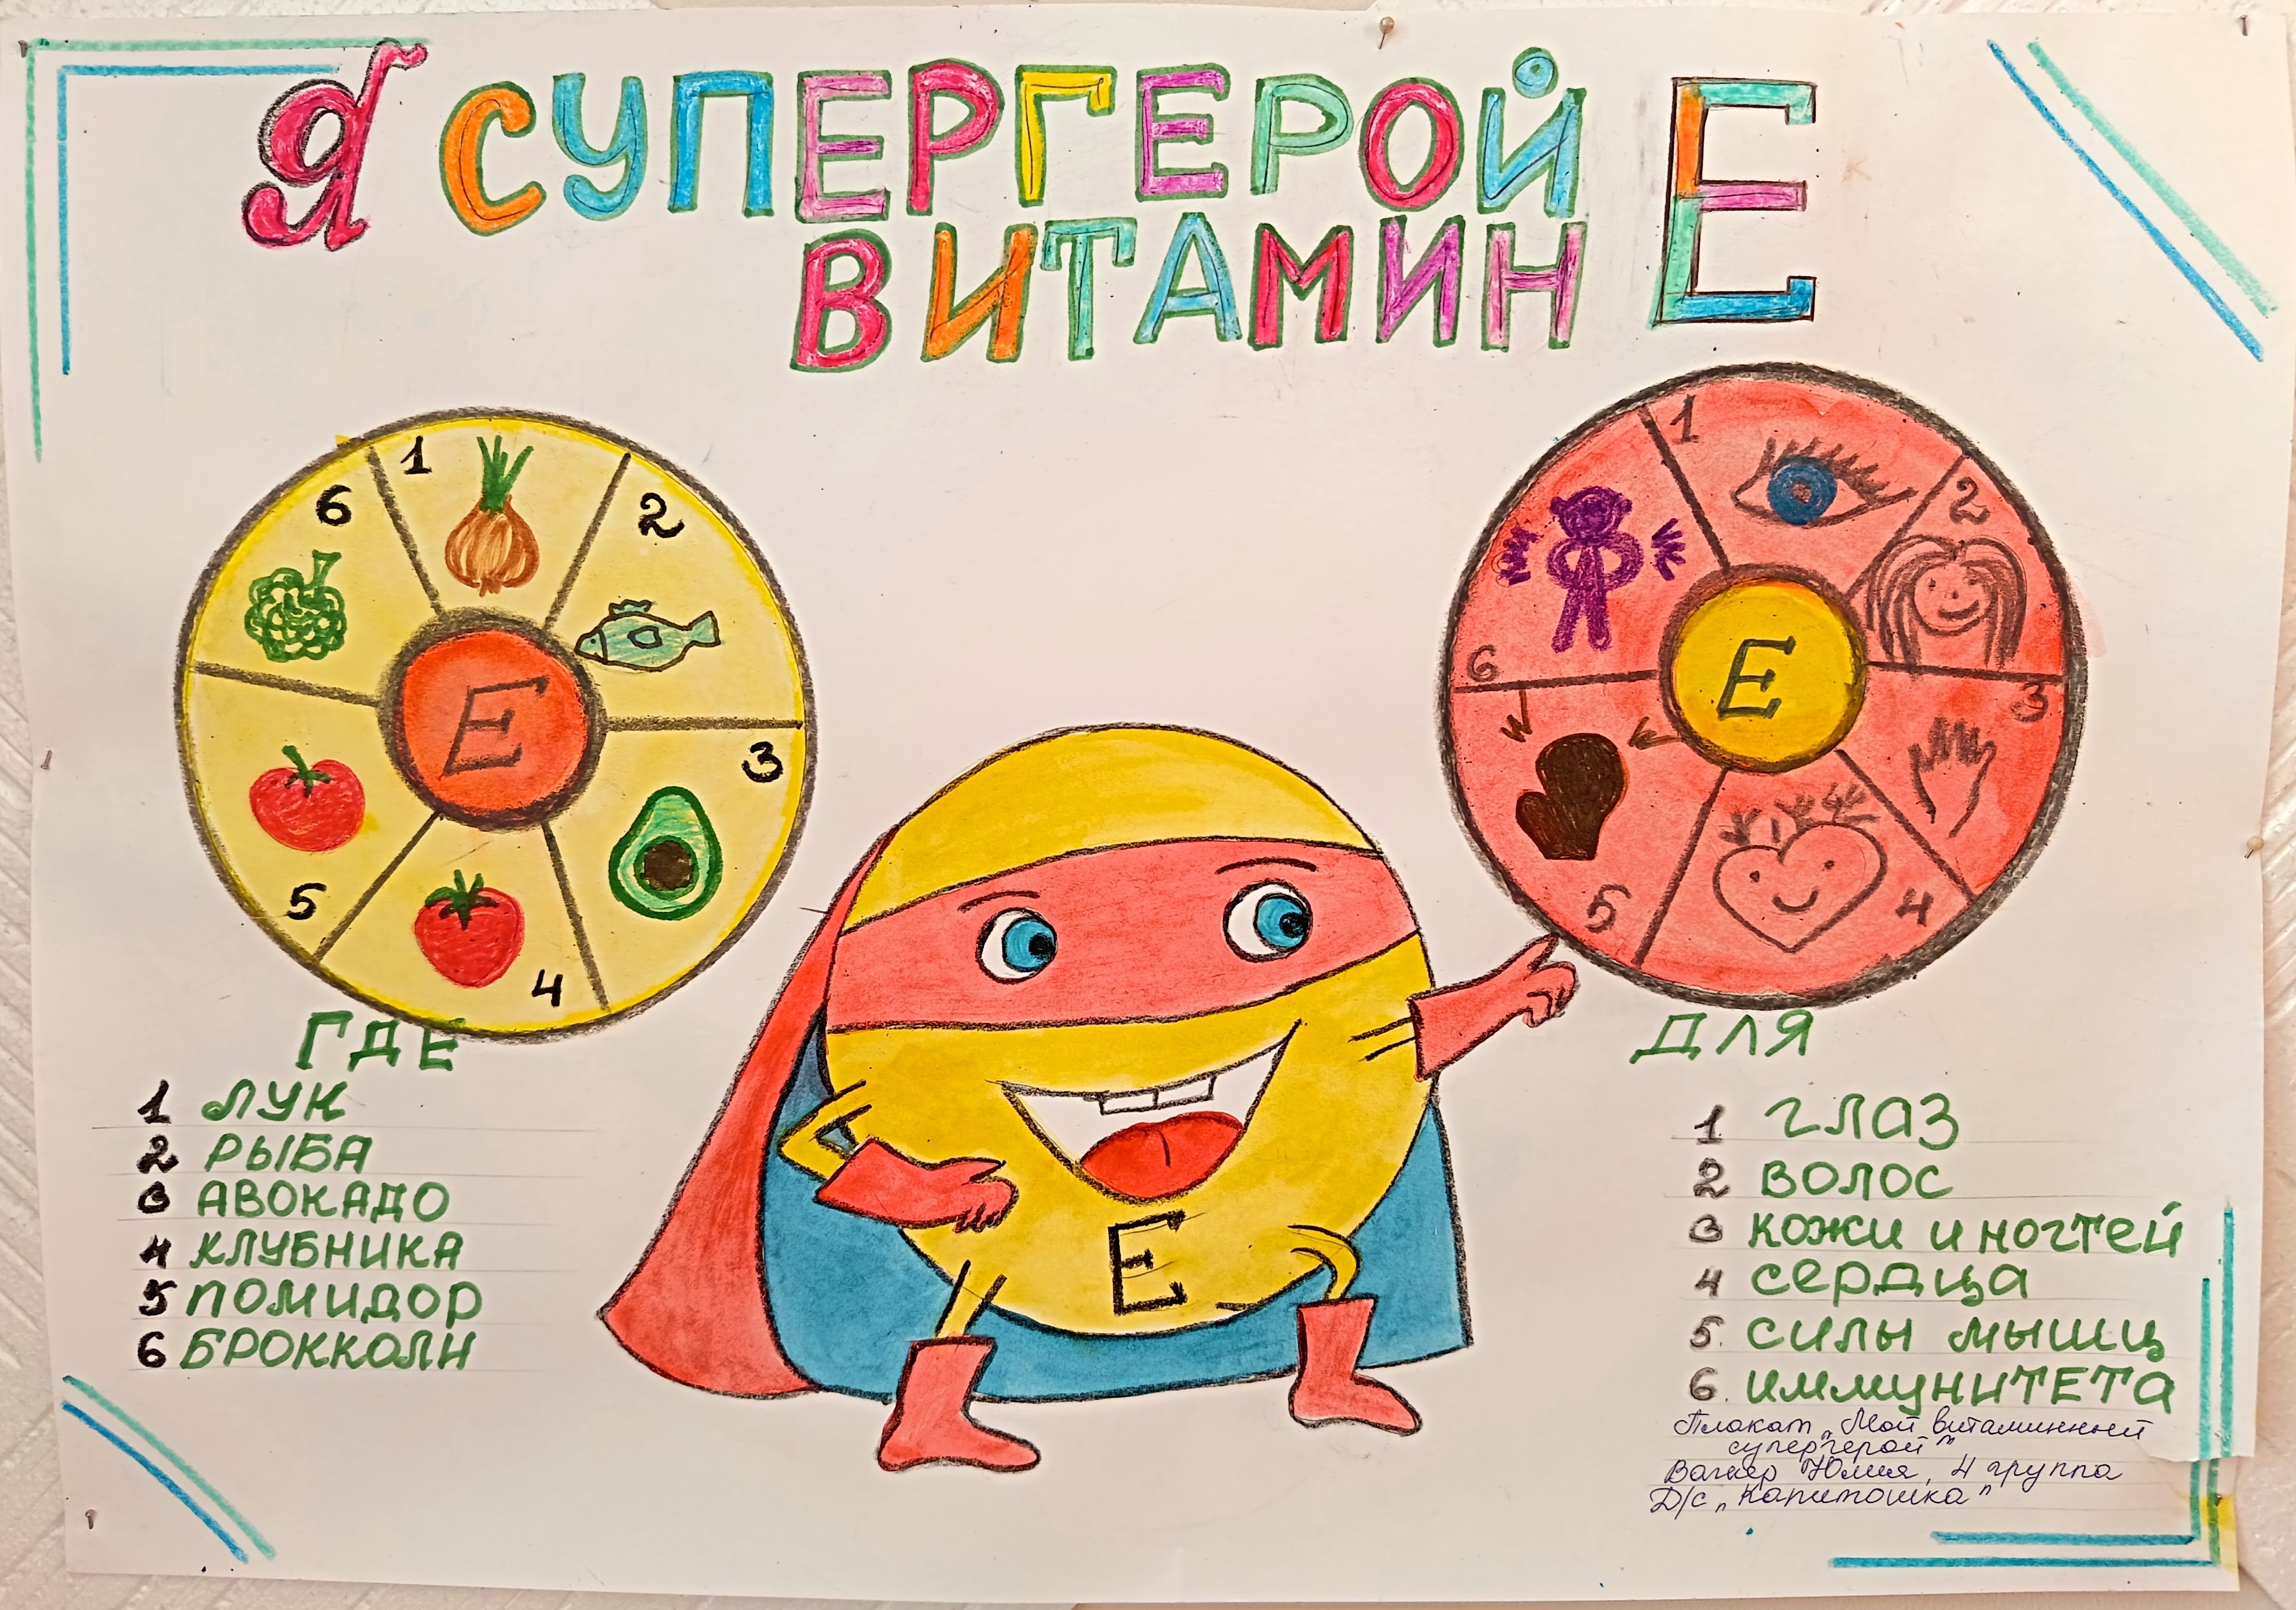 Я СУПЕРГЕРОЙ
ВИТАМИН Е
1
2
3
4
5
6
Е
1
2
3
4
5
6
Е
Е
ГДЕ
1 ЛУК
2 РЫБА
3 АВОКАДО
4 КЛУБНИКА
5 ПОМИДОР
6 БРОККОЛИ
ДЛЯ
1 ГЛАЗ
2 ВОЛОС
3 КОЖИ И НОГТЕЙ
4 СЕРДЦА
5. СИЛЫ МЫШЦ
6. ИММУНИТЕТА
Плакат „Мой витаминный
супергерой"
Вагнер Юлия, 4 группа
Д/с „Капитошка"